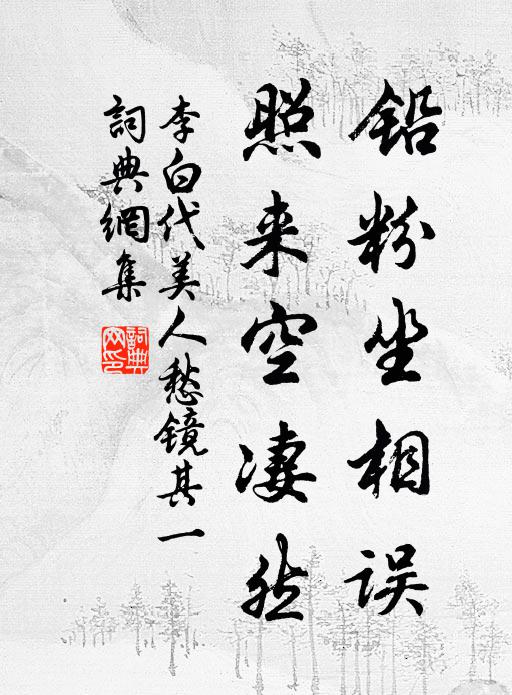 铅粉坐相误
照来空凄然
李白代美人愁镜其一
詞典網集
詞典网印